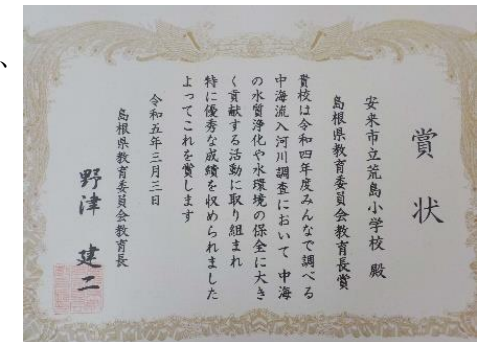 賞状
安来市立荒島小学校 殿
島根県教育委員会教育長賞
貴校は令和四年度みんなで調べる
中海流入河川調査において 中海
の水質浄化や水環境の保全に大き
く貢献する活動に取り組まれ
特に優秀な成績を収められました
よってこれを賞します
令和五年三月三日
島根県教育委員会教育長
野津 建二
、